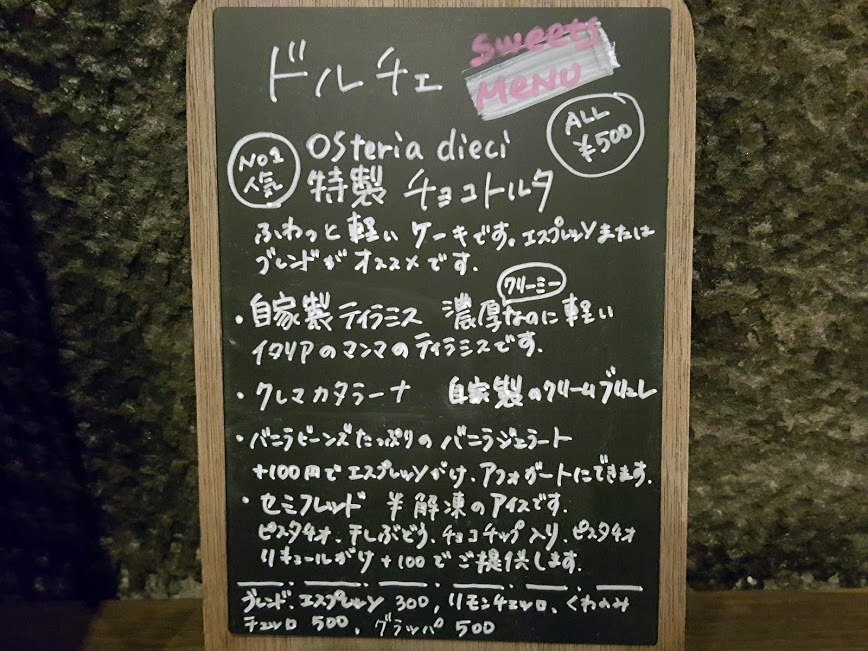 ドルチェ
sweets
MENU
ALL
¥500
No1
人気
Osteria dieci
特製 チョコトルタ
ふわっと軽い ケーキです。エスプレッソまたは
ブレンドが オススメです.
クリーミー
・自家製ティラミス 濃厚なのに軽い
イタリアのマンマのティラミスです.
・クレマカタラーナ 自家製のクリームブリュレ
・バニラビーンズたっぷりの バニラジェラート
+100円で エスプレッソがけ、アフォガートにできます.
・セミフレッド 半解凍のアイスです.
ピスタチオ、干しぶどう、チョコチップ入り、ピスタチオ
リキュールがけ +100でご提供します.
ブレンド、エスプレッソ 300, リモンチェッロ、くわのみ
チェッロ 500、グラッパ 500